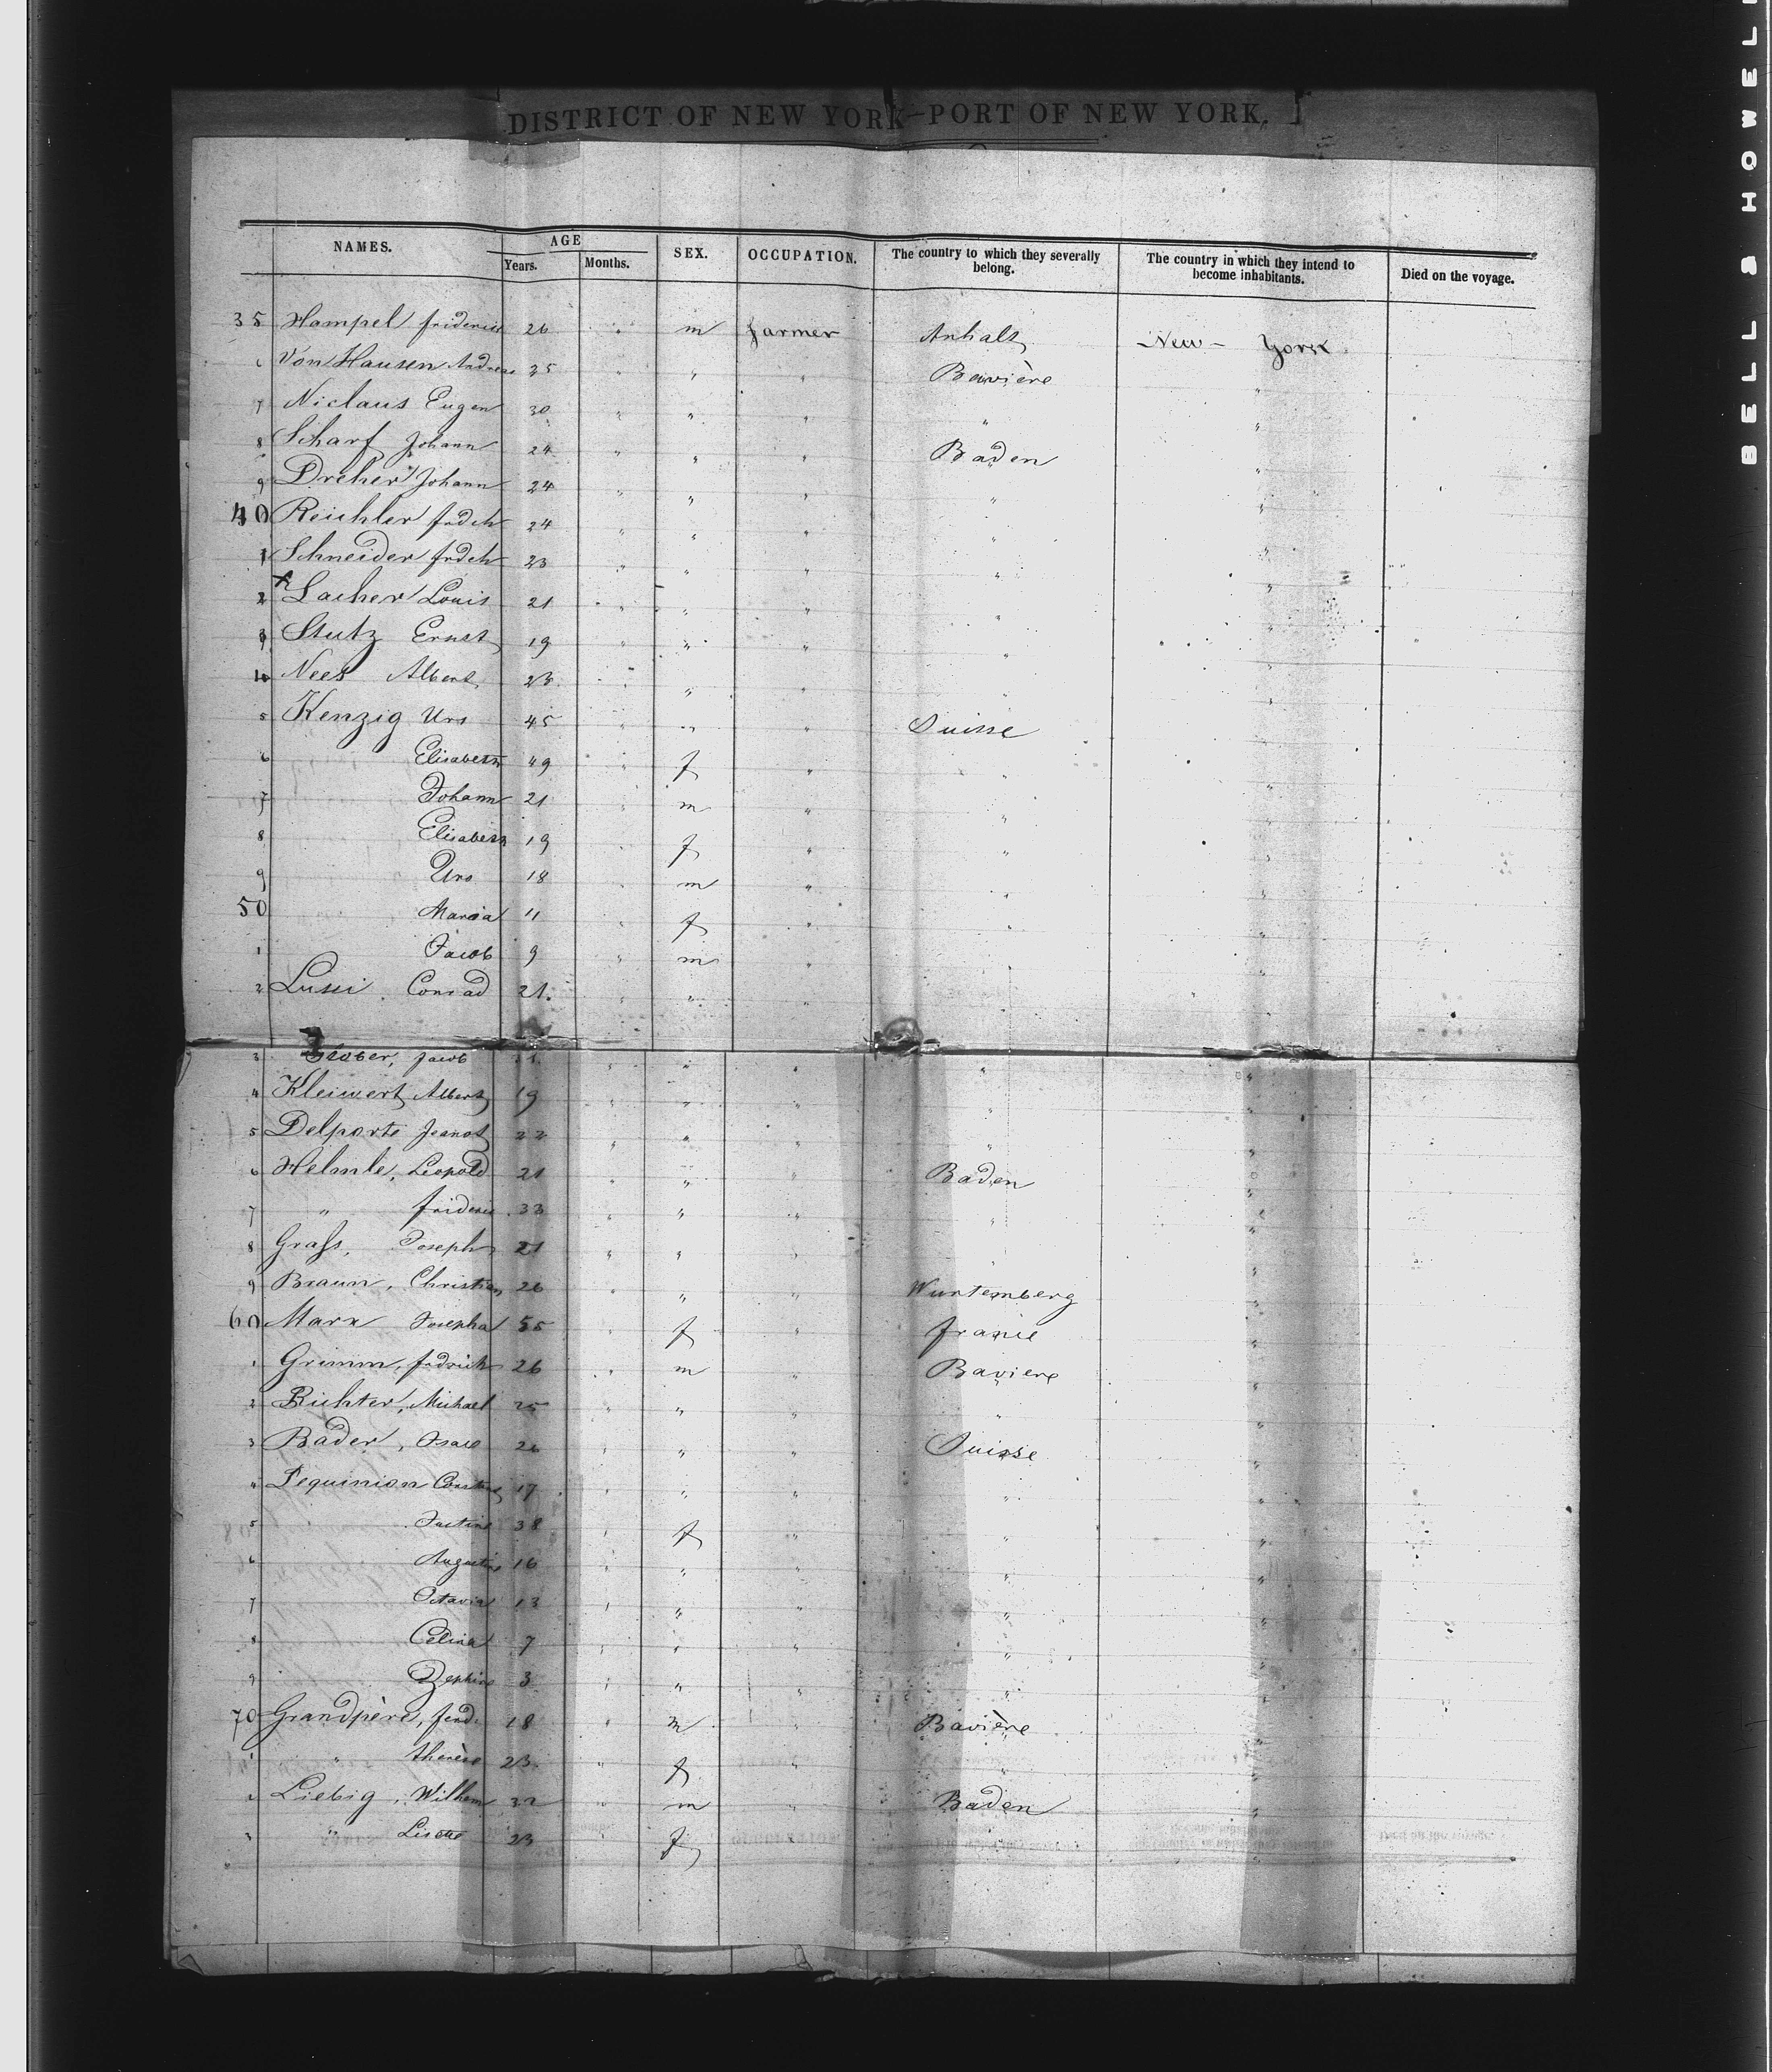 DISTRICT OF NEW YORK—PORT OF NEW YORK.
NAMES. AGE Years. Months. SEX. OCCUPATION. The country to which they severally belong. The country in which they intend to become inhabitants. Died on the voyage.
35 Hampel friderick 26 " m farmer Anhalt New - York
6 Von Hausen Andreas 35 " " " Bavière "
7 Niclaus Eugen 30 " " " " "
8 Scharf Johann 24 " " " Baden "
9 Dreher Johann 24 " " " " "
40 Reichler frdch 24 " " " " "
1 Schneider frdch 23 " " " " "
2 x Lacher Louis 21 " " " " "
3 Stutz Ernst 19 " " " " "
4 Nees Albert 23 " " " " "
5 Kenzig Urs 45 " " " Suisse "
6 Elisabeth 49 " f " " "
7 Johann 21 " m " " "
8 Elisabeth 19 " f " " "
9 Urs 18 " m " " "
50 Maria 11 " f " " "
1 Jacob 9 " m " " "
2 Lussi Conrad 21 " " " "
3 Jacob " " " " "
4 Kleiwert Albert 19 " " " " "
5 Delporte Jeanot 22 " " " " "
6 Helmle, Leopold 21 " " " Baden "
7 " frideric 33 " " " " "
8 Grass, Joseph 21 " " " " "
9 Braun, Christian 26 " " " Wurtemberg "
60 Marx Josepha 55 " f " france "
1 Grimm, fridrich 26 " m " Baviere "
2 Richter, Michael 25 " " " " "
3 Bader, Isaac 26 " " " Suisse "
4 Pequinion 17 " " " " "
5 Justine 38 " f " " "
6 Augustine 16 " " " " "
7 Octavia 13 " " " " "
8 Celina 7 " " " " "
9 Zephire 3 " " " " "
70 Grandpère, ferd. 18 " m " Bavière "
1 " thérèse 23 " f " "
2 Liebig, Wilhem 32 " m " Baden "
3 " Lisette 23 " f
BELL & HOWELL